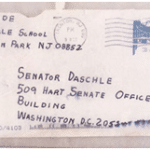 DE
LE SCHOOL
N PARK NJ 08852
SENATOR DASCHLE
509 HART SENATE OFFICE
BUILDING
WASHINGTON D.C. 2051